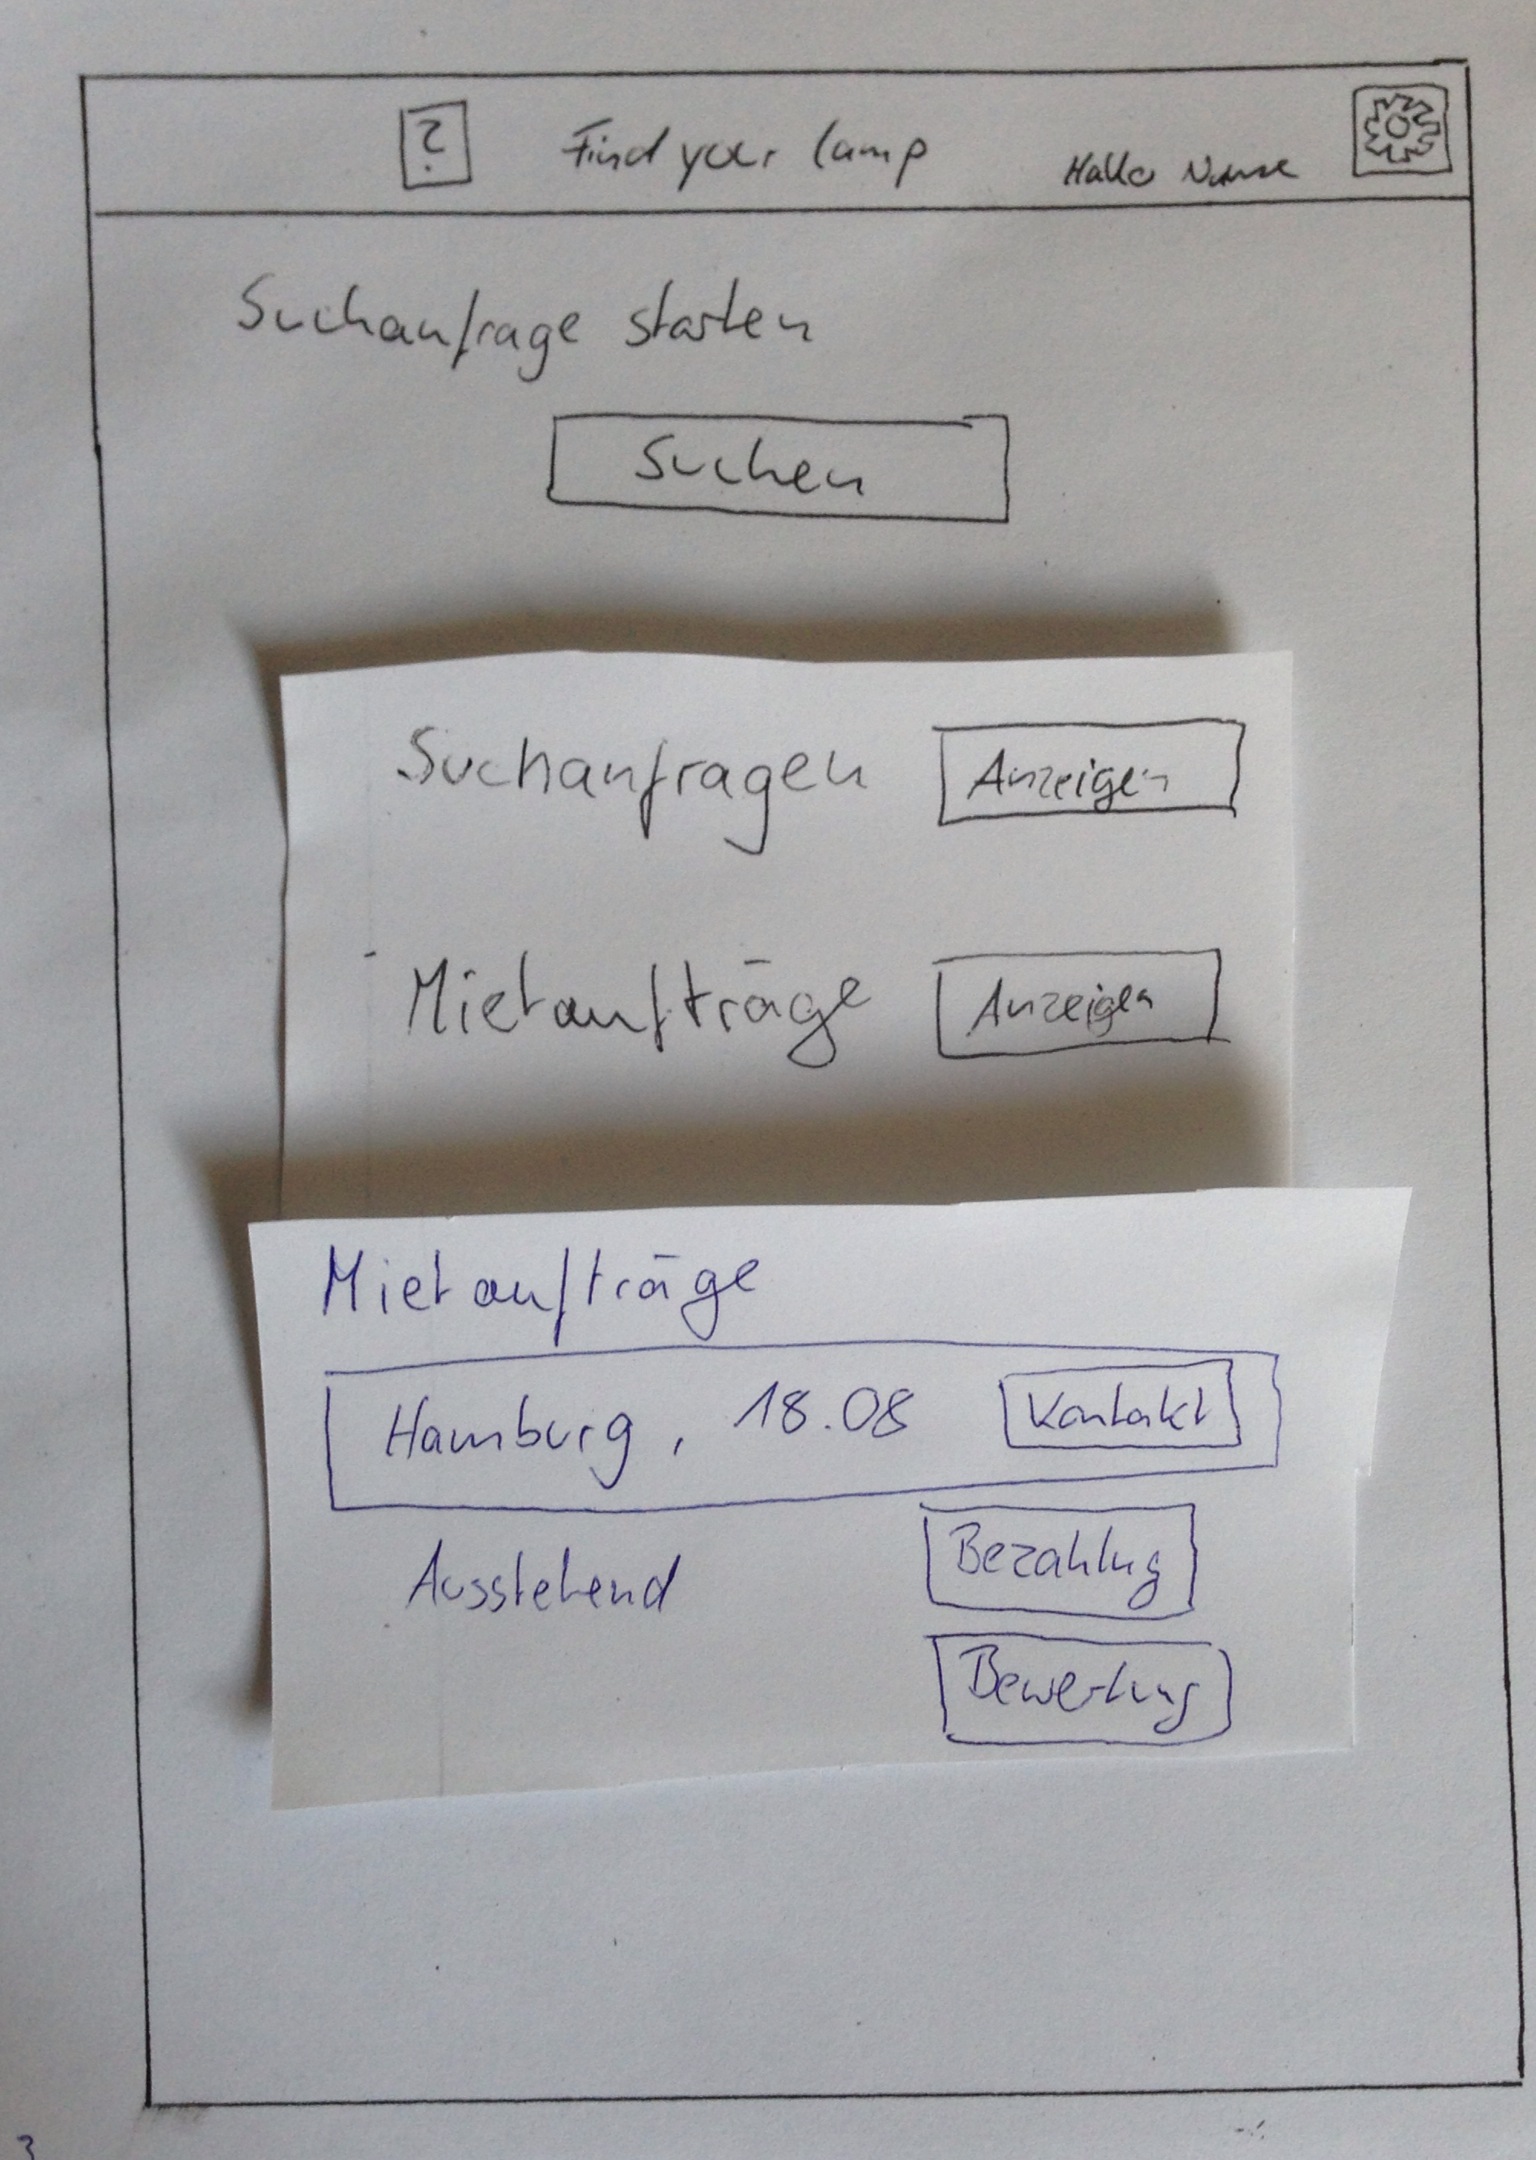 ? Find your lamp Hallo Name
Suchanfrage starten
Suchen
Suchanfragen Anzeigen
Mietaufträge Anzeigen
Mietaufträge
Hamburg, 18.08 Kontakt
Ausstehend Bezahlung
Bewertung
3